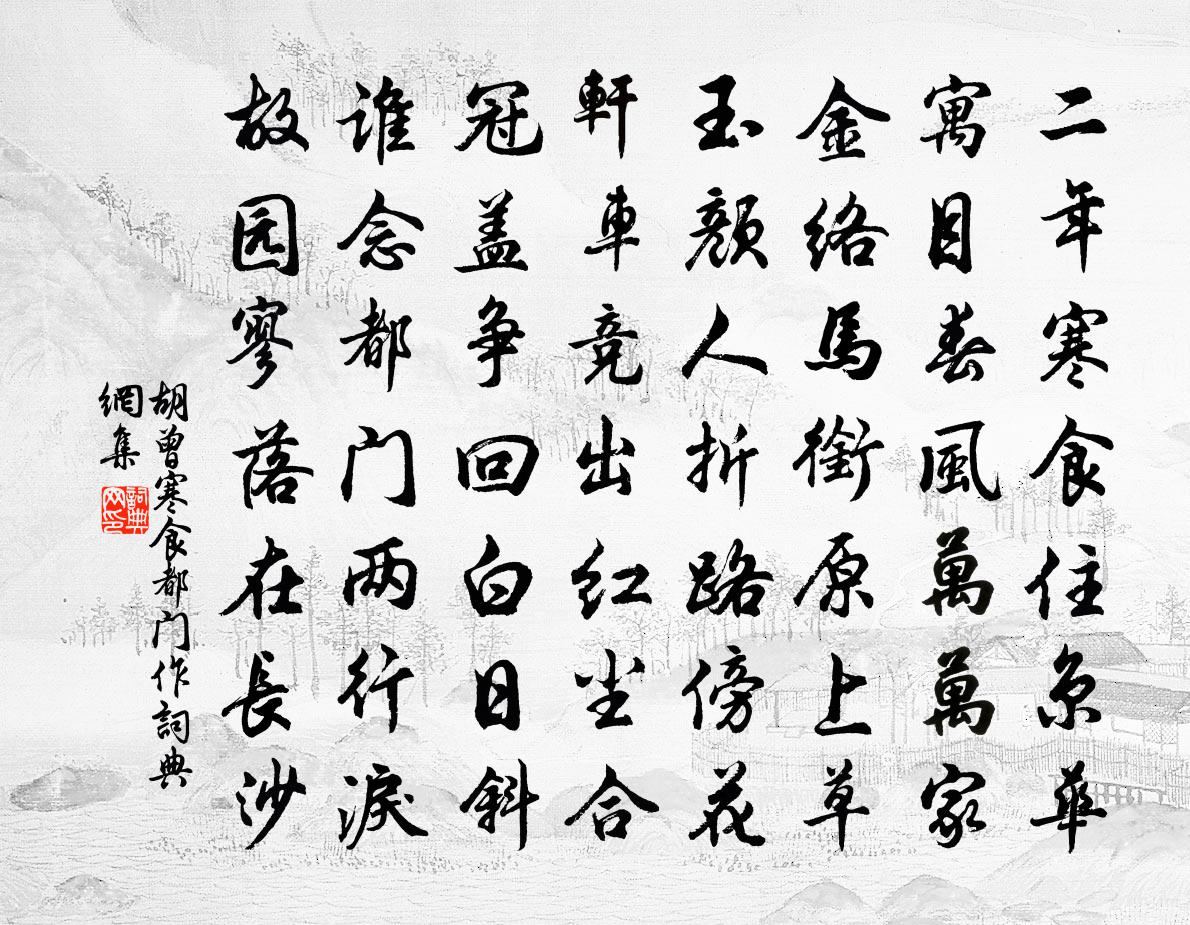 二年寒食住京華
寓目春風萬萬家
金絡馬銜原上草
玉顏人折路傍花
軒車競出红尘合
冠盖争回白日斜
谁念都门两行淚
故园寥落在長沙
胡曾寒食都门作詞典
網集
詞典
网印